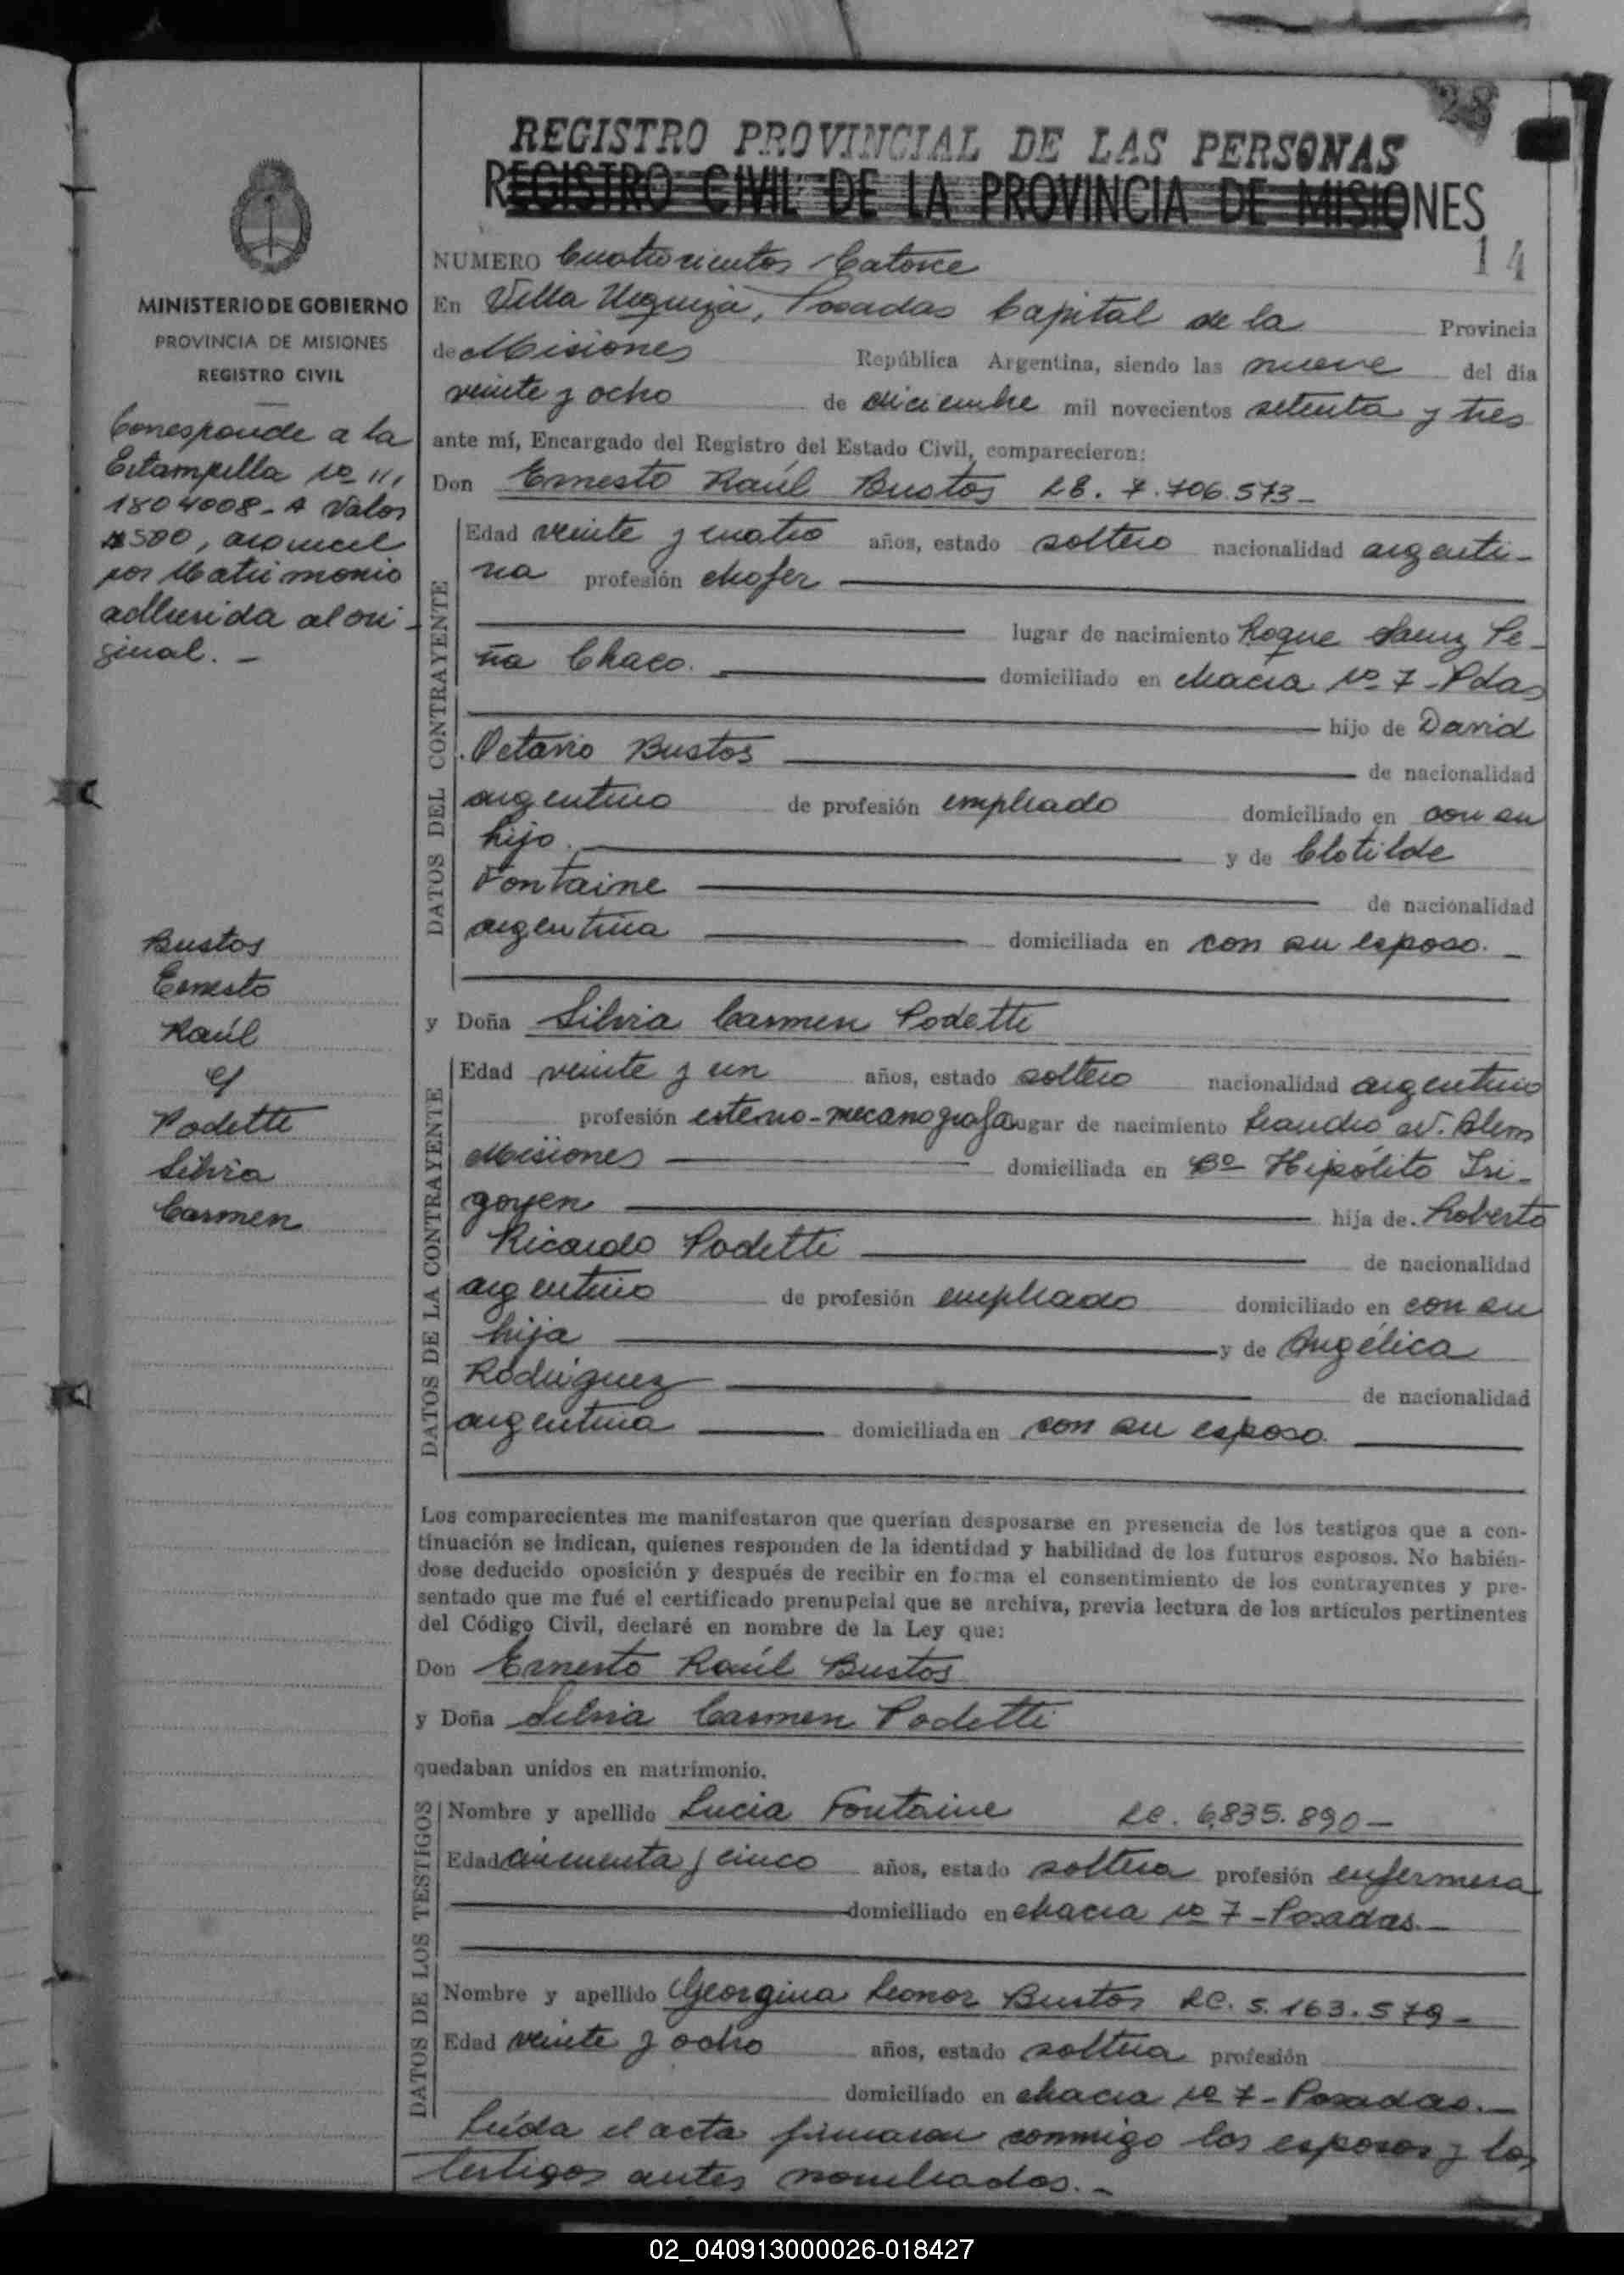 28
REGISTRO PROVINCIAL DE LAS PERSONAS
REGISTRO CIVIL DE LA PROVINCIA DE MISIONES
14
MINISTERIO DE GOBIERNO
PROVINCIA DE MISIONES
REGISTRO CIVIL
Corresponde a la
Estampilla Nº 11,
1804008-A Valor
$500, arancel
por Matrimonio
adherida al ori-
ginal. -
Bustos
Ernesto
Raúl
y
Podetti
Silvia
Carmen
NUMERO Cuatrocientos Catorce
En Villa Urquiza, Posadas Capital de la Provincia
de Misiones República Argentina, siendo las nueve del día
veinte y ocho de diciembre mil novecientos setenta y tres
ante mí, Encargado del Registro del Estado Civil, comparecieron:
Don Ernesto Raúl Bustos LE. 7.706.573-
DATOS DEL CONTRAYENTE
Edad veinte y cuatro años, estado soltero nacionalidad argenti-
na profesión chofer
lugar de nacimiento Roque Saenz Pe-
ña Chaco. domiciliado en chacra Nº 7 - Pdas
hijo de David
Octavio Bustos de nacionalidad
argentino de profesión empleado domiciliado en con su
hijo. y de Clotilde
Fontaine de nacionalidad
argentina domiciliada en con su esposo. -
y Doña Silvia Carmen Podetti
DATOS DE LA CONTRAYENTE
Edad veinte y un años, estado soltero nacionalidad argentino
profesión esteno-mecanografa lugar de nacimiento Leandro N. Alem
Misiones domiciliada en Bº Hipólito Iri-
goyen hija de. Roberto
Ricardo Podetti de nacionalidad
argentino de profesión empleado domiciliado en con su
hija y de Angélica
Rodríguez de nacionalidad
argentina domiciliada en con su esposo.
Los comparecientes me manifestaron que querían desposarse en presencia de los testigos que a con-
tinuación se indican, quienes responden de la identidad y habilidad de los futuros esposos. No habién-
dose deducido oposición y después de recibir en forma el consentimiento de los contrayentes y pre-
sentado que me fué el certificado prenupcial que se archiva, previa lectura de los artículos pertinentes
del Código Civil, declaré en nombre de la Ley que:
Don Ernesto Raúl Bustos
y Doña Silvia Carmen Podetti
quedaban unidos en matrimonio.
DATOS DE LOS TESTIGOS
Nombre y apellido Lucia Fontaine LC. 6,835.890-
Edad cincuenta y cinco años, estado soltera profesión enfermera
domiciliado en chacra Nº 7 - Posadas. -
Nombre y apellido Georgina Leonor Bustos LC. 5.163.579-
Edad veinte y ocho años, estado soltera profesión
domiciliado en chacra Nº 7 - Posadas. -
Leída el acta firmaron conmigo los esposos y los
testigos antes nombrados. -
02_040913000026-018427